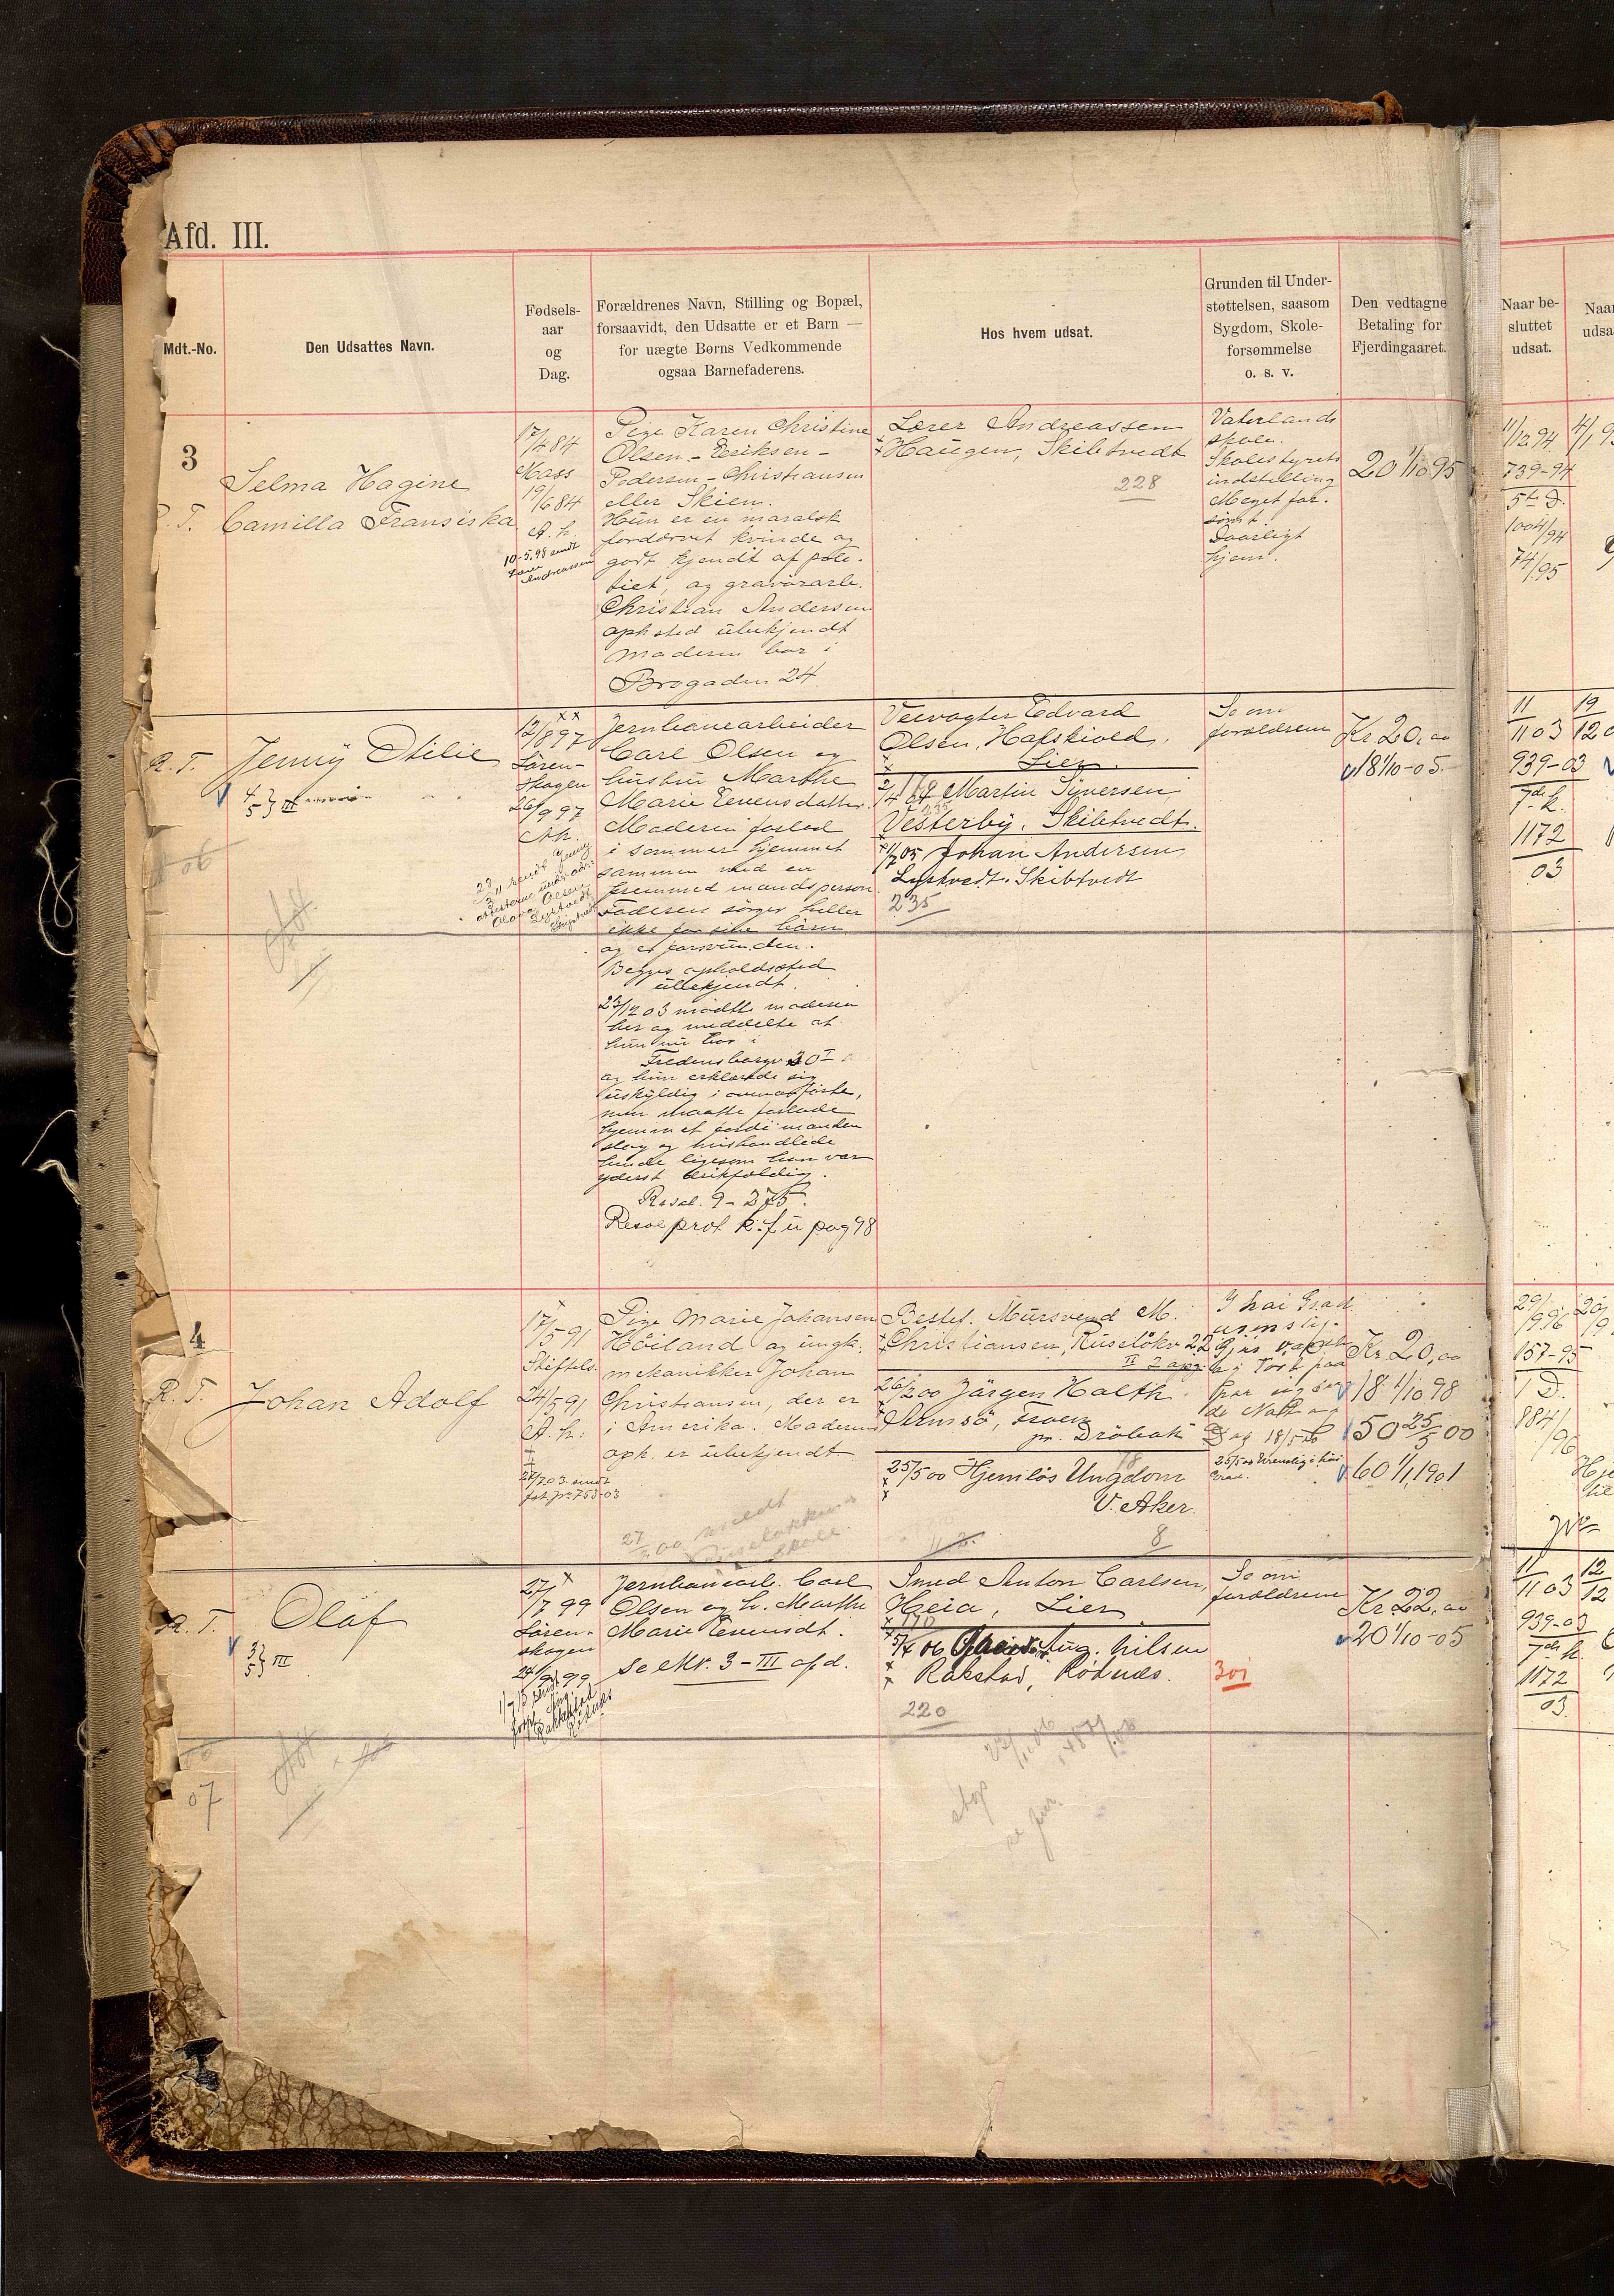 Afd. III.
Mdt.-No.
Den Udsattes Navn.
Fødsels-
aar
og
Dag.
Forældrenes Navn, Stilling og Bopæl,
forsaavidt, den Udsatte er et Barn —
for uægte Børns Vedkommende
ogsaa Barnefaderens.
Hos hvem udsat.
Grunden til Under-
støttelsen, saasom
Sygdom, Skole-
forsømmelse
o. s. v.
Den vedtagne
Betaling for
Fjerdingaaret.
Naar be-
sluttet
udsat.
3
Selma Hagine
Camilla Fransiska
17/4 84
Moss
19/6 84
A. h.
10-5.98 sendt
Lærer
Andreassen
Pige Karen Christine
Olsen - Eriksen -
Pedersen - Christiansen
eller Skien.
Hun er en moralsk
fordærvet kvinde og
godt kjendt af poli-
tiet, og gravørarb.
Christian Andersen
oph sted ubekjendt
Moderen bor i
Brogaden 24
Lærer Andreassen
Haugen, Skibtvedt
228
Vaterlands
skole.
Skolestyrets
indstilling
Meget for-
sømt.
Daarligt
hjem.
20 1/10 95
11/12 94
739-94
5te D.
1004/94
74/95
R. T.
Jenny Otilie
4 } III
5
12/8 97
Lören-
skogen
26/9 97
A.h.
Jernbanearbeider
Carl Olsen og
hustru Marthe
Marie Evensdatter.
Moderen forlod
i sommer hjemmet
sammen med en
fremmed mandsperson
Faderen sørger heller
ikke for sine børn
og er forsvunden.
Begges opholdssted
ubekjendt.
23/12 03 mødte moderen
her og meddelte at
hun nu bor i
Fredensborgv 30 I
og hun erklærede sig
uskyldig i ovenanførte,
men maatte forlade
hjemmet fordi manden
slog og mishandlede
hende ligesom han var
yderst drikfældig.
Resol. 9-375.
Resoe prot k.f u pag 98
Veivogter Edvard
Olsen, Hafskivold,
Lier.
2/4 04 Martin Syversen
Vesterby. Skibtvedt.
1/7 05 Johan Andersen
Lystvedt. Skibtvedt
235
Se om
forældrene
Kr. 20,00
18 1/10-05.
11
11 03
939-03
7de k.
1172
03
4
R. T.
Johan Adolf
17/5 91
Stiftels.
24/5 91
A. h.
27/7 03 sendt
fot. jr. 753-03
Pige Marie Johansen
Höiland og ungk.
mekanikker Johan
Christiansen, der er
i Amerika. Moderens
oph. er ubekjendt
Bestef. Mursvend M.
Christiansen, Ruselökv 22
II 2 opg
26/2 00 Jörgen Holth
Armsö, Froen
pr. Dröbak
25/5 00 Hjemlös Ungdom
V. Aker.
8
Kr. 20,00
18 1/10 98
50 25/5 00
60 1/1 1901
157-95
1 D.
884/96
R. T.
Olaf
3 } III
5
27/7 99
Lören-
skogen
24/9 99
Jernbanearb. Carl
Olsen og h. Marthe
Marie Evensdt.
Se Mr. 3-III afd.
Smed Anton Carlsen,
Heia, Lier
5/4 06 Aug. Nilsen
Rakstad, Rödnes.
301
220
Se om
forældrene
Kr. 22,00
20 1/10-05
11
11 03
939-03
7de k.
1172
03
07
stop